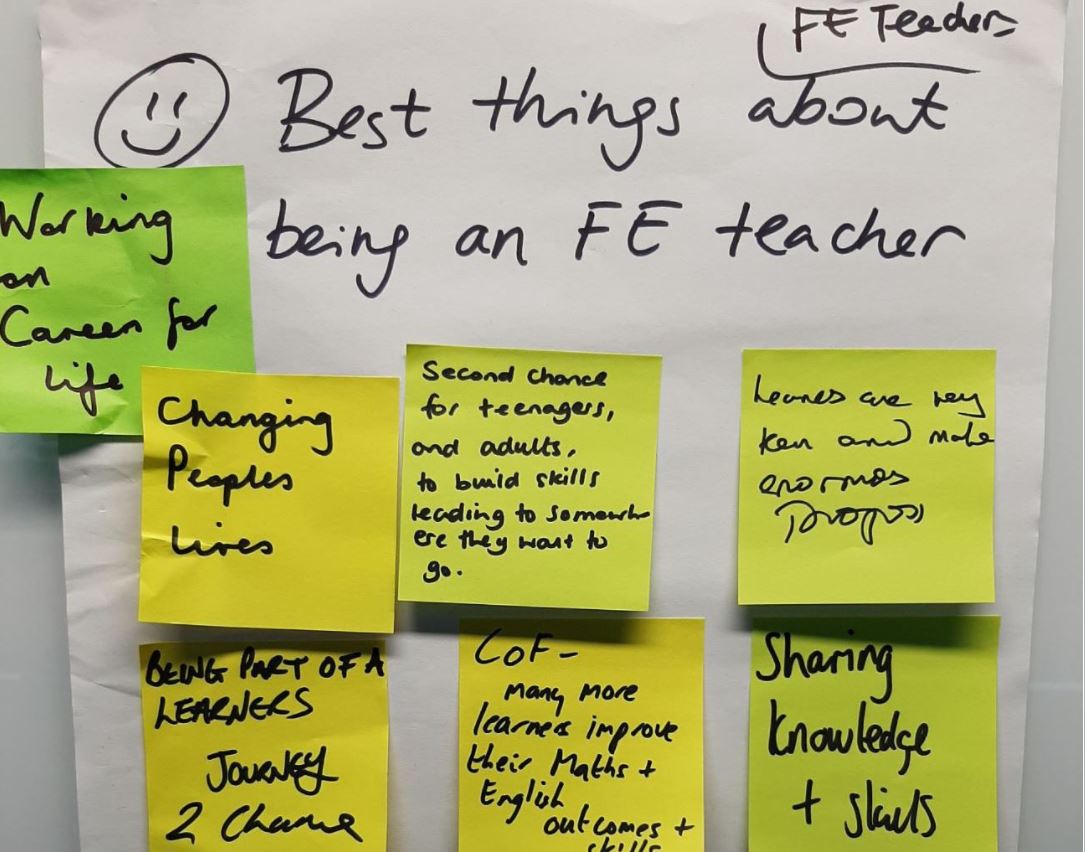 FE Teachers
Best things about
being an FE teacher
Working
on
Career for
Life
Changing
Peoples
Lives
Second chance
for teenagers,
and adults,
to build skills
leading to somewh
ere they want to
go.
Learners are very
keen and make
enormous
progress
BEING PART OF A
LEARNERS
JOURNEY
2 Chance
CoF-
many more
learners improve
their Maths +
English
outcomes +
skills
Sharing
Knowledge
+ skills